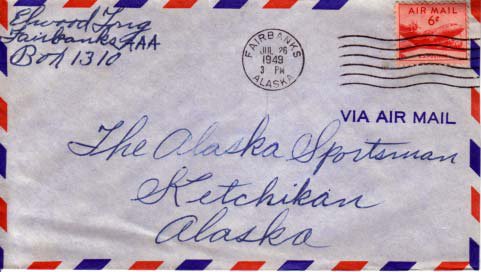 Elwood
Fairbanks
Box 1310
FAIRBANKS
JUL 26
1949
3 PM
ALASKA
AIR MAIL
6¢
VIA AIR MAIL
The Alaska Sportsman
Ketchikan
Alaska